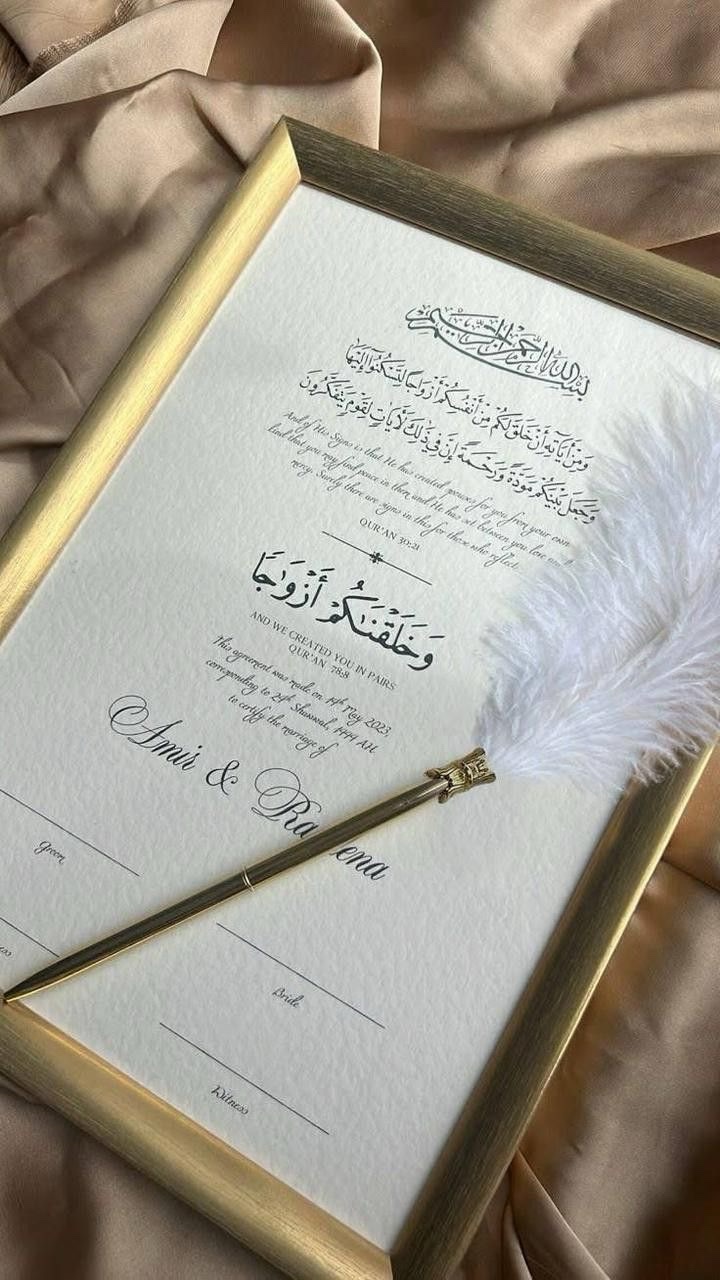 بسم الله الرحمن الرحيم
وَمِنْ آيَاتِهِ أَنْ خَلَقَ لَكُم مِّنْ أَنفُسِكُمْ أَزْوَاجًا لِّتَسْكُنُوا إِلَيْهَا
وَجَعَلَ بَيْنَكُم مَّوَدَّةً وَرَحْمَةً إِنَّ فِي ذَٰلِكَ لَآيَاتٍ لِّقَوْمٍ يَتَفَكَّرُونَ
And of His Signs is that He has created spouses for you from your own
kind that you may find peace in them and He has set between you love
mercy. Surely there are signs in this for those who reflect.
QUR'AN 30:21
وَخَلَقْنَـٰكُمْ أَزْوَٰجًا
AND WE CREATED YOU IN PAIRS
QUR'AN 78:8
This agreement was made on 14th May 2023,
corresponding to 24th Shawwal, 1444 AH.
to certify the marriage of
Amir & Ra ena
Groom
Bride
Witness